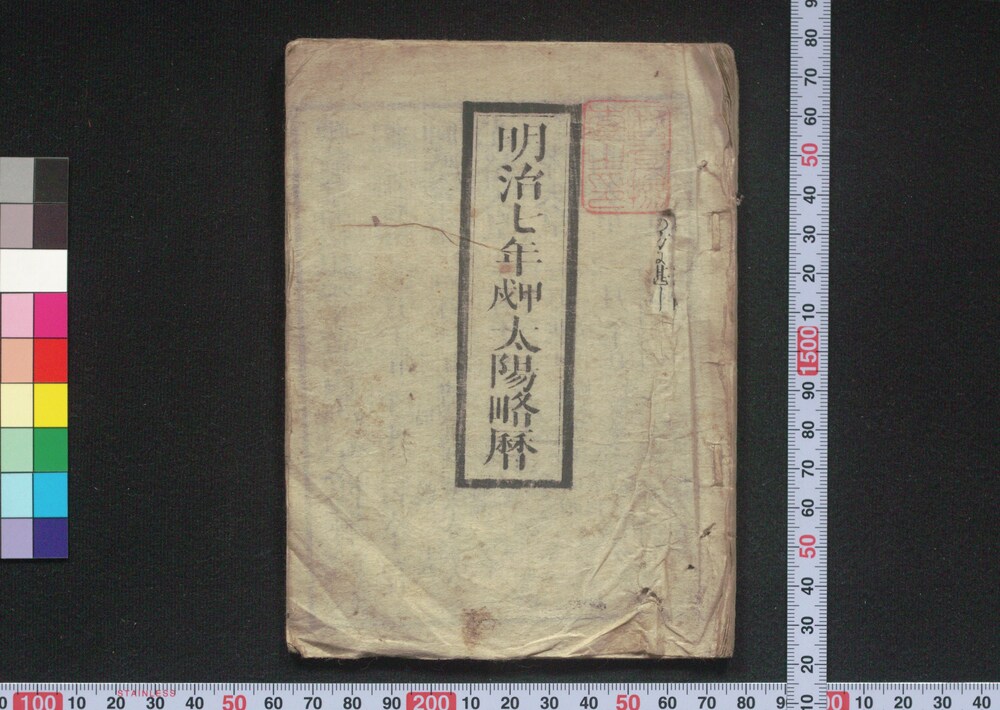 明治七年甲戌太陽略暦
90
80
70
60
50
40
30
20
10
1500
90
80
70
60
50
40
30
20
10
0
100
10
20
30
40
50
60
70
80
90
200
10
20
30
40
50
60
70
80
9
0
10
20
30
40
STAINLESS